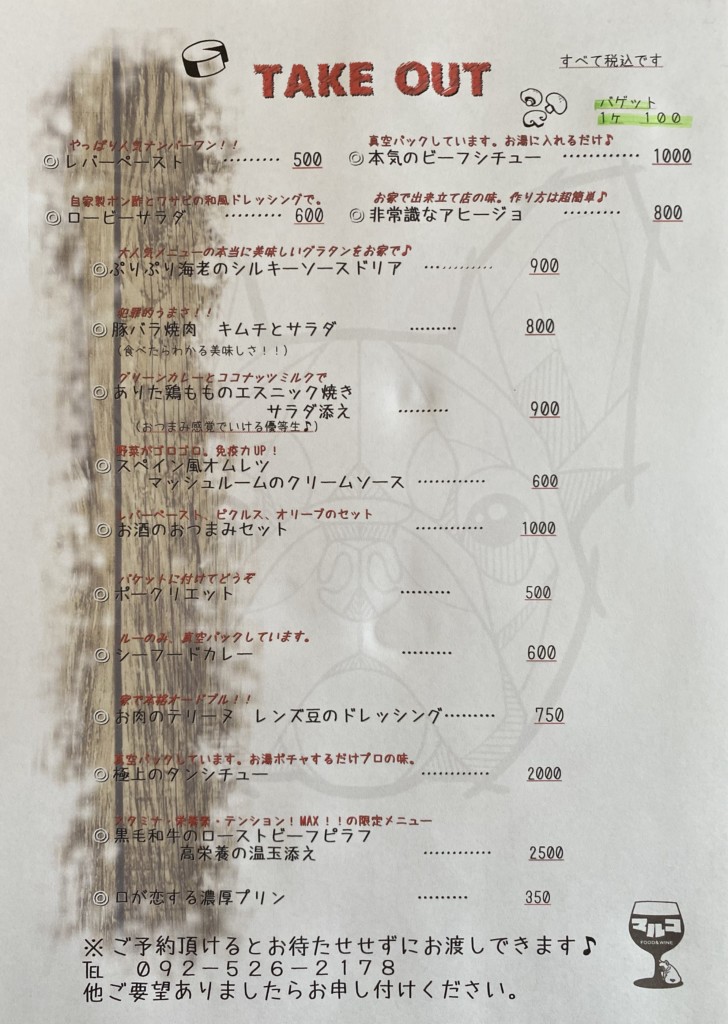 TAKE OUT
すべて税込です
バゲット
1ヶ 100
やっぱり人気ナンバーワン！！
◎レバーペースト ……… 500
真空パックしています。お湯に入れるだけ♪
◎本気のビーフシチュー ………… 1000
自家製ポン酢とワサビの和風ドレッシングで。
◎ロービーサラダ ……… 600
お家で出来立て店の味。作り方は超簡単♪
◎非常識なアヒージョ ……… 800
大人気メニューの本当に美味しいグラタンをお家で♪
◎ぷりぷり海老のシルキーソースドリア ………… 900
犯罪的うまさ！！
◎豚バラ焼肉 キムチとサラダ ……… 800
（食べたらわかる美味しさ！！）
グリーンカレーとココナッツミルクで
◎ありた鶏もものエスニック焼き
サラダ添え ……… 900
（おつまみ感覚でいける優等生♪）
野菜がゴロゴロ。免疫力UP！
◎スペイン風オムレツ
マッシュルームのクリームソース ………… 600
レバーペースト、ピクルス、オリーブのセット
◎お酒のおつまみセット ………… 1000
バケットに付けてどうぞ
◎ポークリエット ……… 500
ルーのみ、真空パックしています。
◎シーフードカレー ……… 600
家で本格オードブル！！
◎お肉のテリーヌ レンズ豆のドレッシング……… 750
真空パックしています。お湯ポチャするだけプロの味。
◎極上のタンシチュー ………… 2000
スタミナ・栄養素・テンション！MAX！！の限定メニュー
◎黒毛和牛のローストビーフピラフ
高栄養の温玉添え ………… 2500
◎口が恋する濃厚プリン ……… 350
※ご予約頂けるとお待たせせずにお渡しできます♪
℡ 092-526-2178
他ご要望ありましたらお申し付けください。
マルコ
FOOD&WINE